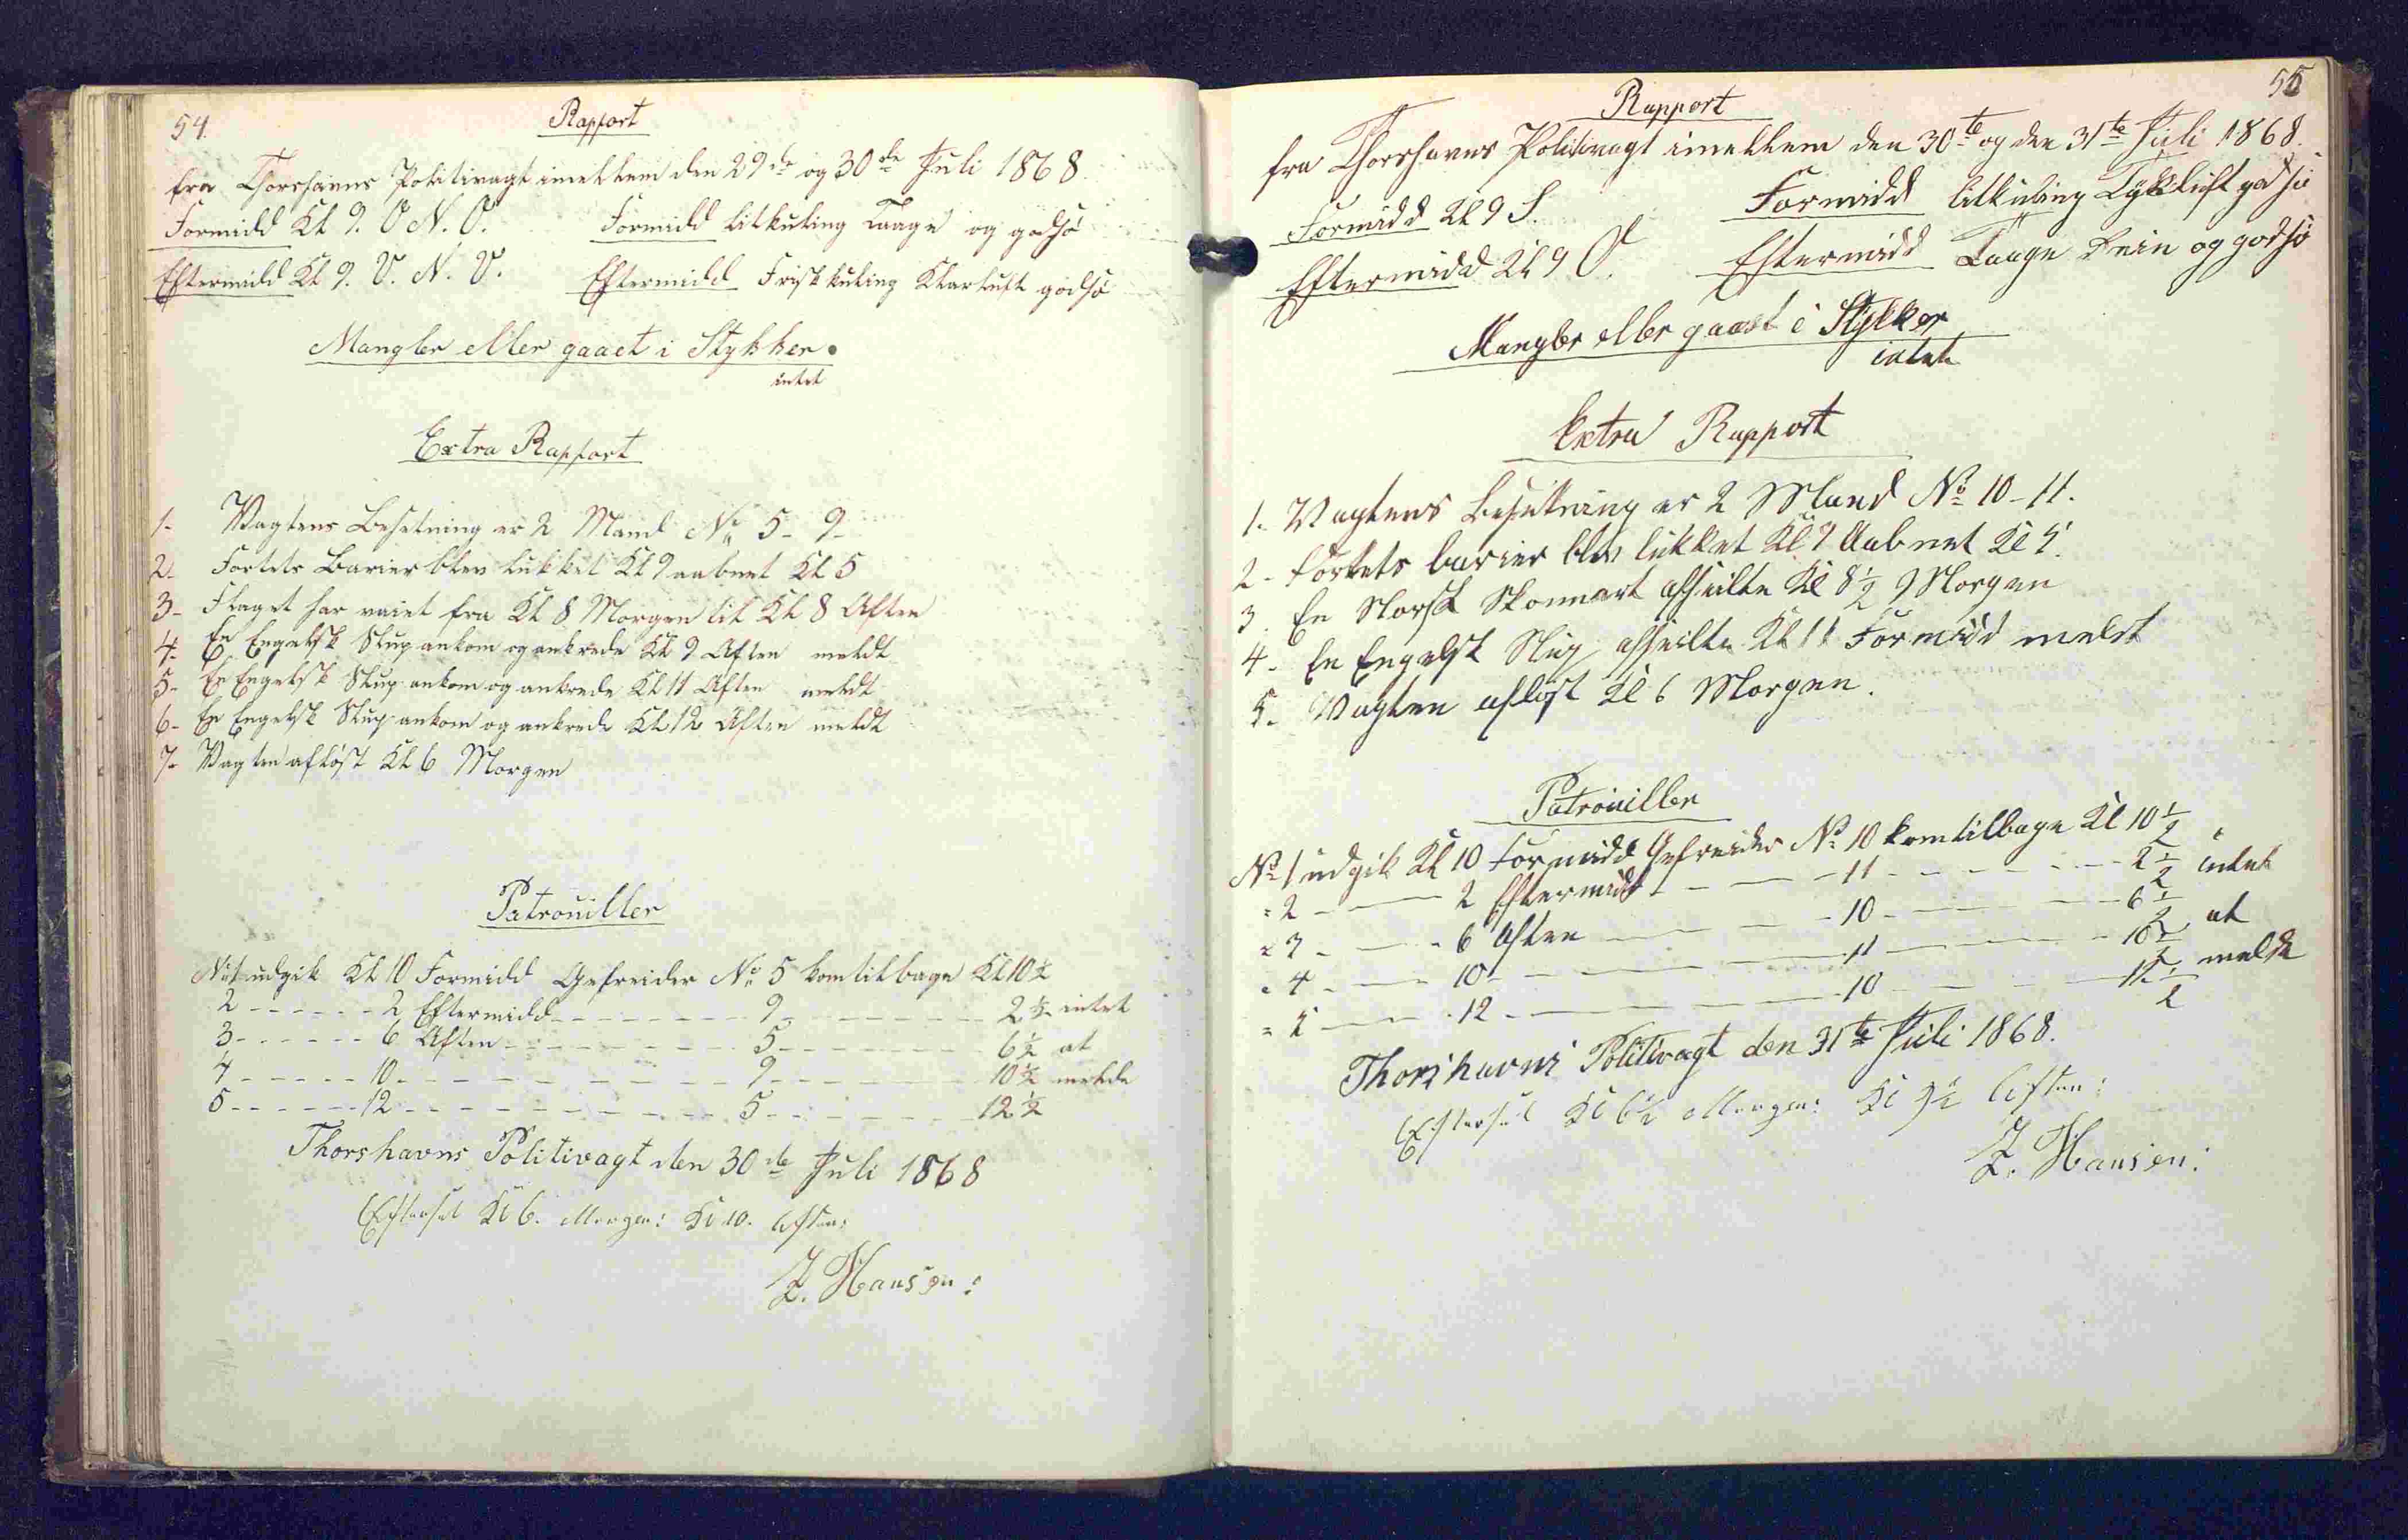 54.
Rapport
fra Thorshavns Politivagt imellem den 29de og 30de Juli 1868.
Formidd Kl 9. O N. O. Formidd litkuling Taage og godsø
Eftermidd Kl 9. V. N. V. Eftermidd Friskkuling Klarluft godsø
Mangler eller gaaet i Stykker.
intet
Extra Rapport
1- Vagtens Besætning er 2 Mand No 5- 9-
2- Fortets Barier blev lukket Kl 9 aabnet Kl 5
3- Flaget har vaiet fra Kl 8 Morgen til Kl 8 Aften
4- En Engelsk Slup ankom og ankrede Kl 9 Aften meldt
5- En Engelsk Slup ankom og ankrede Kl 11 Aften meldt
6- En Engelsk Slup ankom og ankrede Kl 12 Aften meldt
7- Vagten afløst Kl 6 Morgen
Patrouiller
No 1 udgik Kl 10 Formidd Gefreider No 5 kom tilbage Kl 10 1/2
2 - - - - - - 2 Eftermidd - - - - - - - - 9 - - - - - - - - 2 1/2 intet
3 - - - - - - 6 Aften - - - - - - - - - - 5 - - - - - - - - 6 1/2 at
4 - - - - - 10 - - - - - - - - - - - - 9 - - - - - - - 10 1/2 melde
5 - - - - - - 12 - - - - - - - - - - - 5 - - - - - - - 12 1/2
Thorshavns Politivagt den 30de Juli 1868
Efterset Kl 6. Morgen: Kl 10. Aften:
Z. Hansen:
55
Rapport
fra Thorshavns Politivagt imellem den 30te og den 31te Juli 1868.
Formidd Kl 9 S. Formidd litkuling Tykluft godsø
Eftermidd Kl 9 O. Eftermidd Taage Rein og godsø
Mangler eller gaaet i Stykker
intet
Extra Rapport
1. Vagtens Besætning er 2 Mand No 10-11.
2- Fortets barier blev lukket Kl 9 Aabnet Kl 5.
3. En Norsk Skonnert afseilte Kl 8 1/2 Morgen
4- En Engelsk Slup afseilte Kl 11 Formidd meldt
5. Vagten afløst Kl 6 Morgen.
Patrouiller
No 1 udgik Kl 10 Formidd Gefreider No 10 kom tilbage Kl 10 1/2
" 2 - - - 2 Eftermidd - - - - 11 - - - - - 2 1/2 intet
" 3 - - - 6 Aften - - - - 10 - - - - - 6 1/2 at
" 4 - - - 10 - - - - - 11 - - - - 10 1/2 melde
" 5 - - - 12 - - - - - 10 - - - - 12 1/2
Thorshavns Politivagt den 31te Juli 1868.
Efterset Kl 6 1/2 Morgen: Kl 9 1/2 Aften:
Z. Hansen: